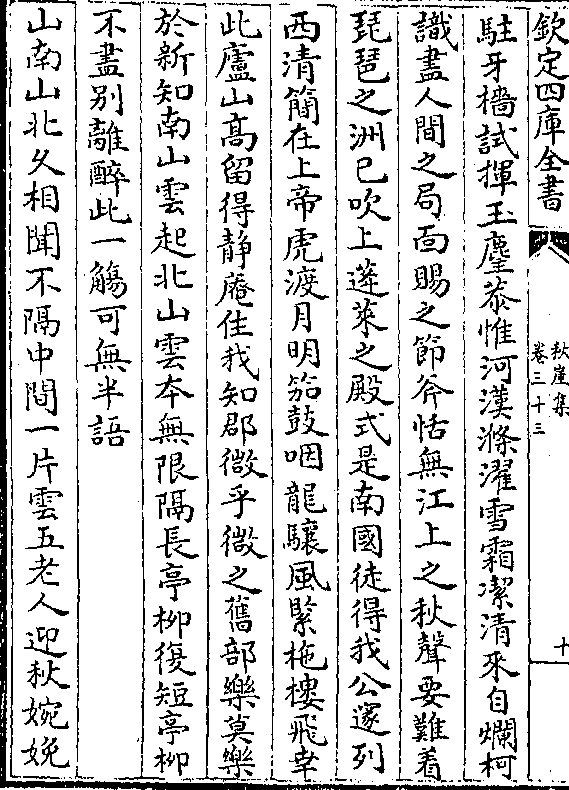 欽定四庫全書
秋崖集
卷三十三
十
駐牙檣試揮玉麈恭惟河漢滌濯雪霜潔清來自爛柯
識盡人間之局面賜之節斧恬無江上之秋聲要難着
琵琶之洲已吹上蓬萊之殿式是南國徒得我公邃列
西清簡在上帝虎渡月明笳鼓咽龍驤風緊柂樓飛幸
此廬山高留得静庵住我知郡微乎微之舊部樂莫樂
於新知南山雲起北山雲本無限隔長亭柳復短亭柳
不盡别離醉此一觴可無半語
山南山北久相聞不隔中間一片雲五老人迎秋婉娩